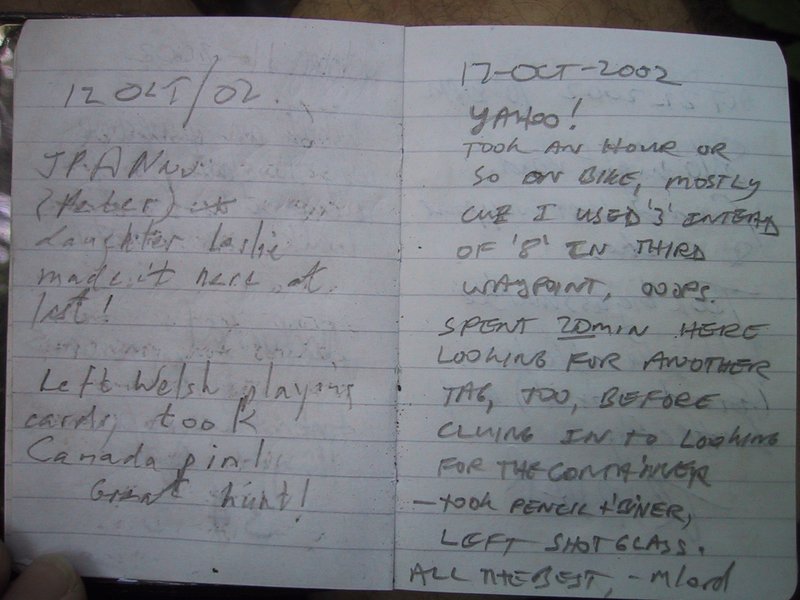 12 OCT/02.
JPANnv
(Peter) +
daughter Leslie
made it here at
last!
Left Welsh playing
cards, took
Canada pin!
Great hunt!
17-OCT-2002
YAHOO!
TOOK AN HOUR OR
SO ON BIKE, MOSTLY
CUZ I USED '3' INTEAD
OF '8' IN THIRD
WAYPOINT, OOOPS.
SPENT 20MIN HERE
LOOKING FOR ANOTHER
TAG, TOO, BEFORE
CLUING IN TO LOOKING
FOR THE CONTAINER
- TOOK PENCIL + 'BINER,
LEFT SHOTGLASS.
ALL THE BEST, - Mlord